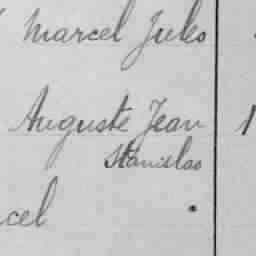 Marcel Jules
Auguste Jean 1
Stanislas
cel